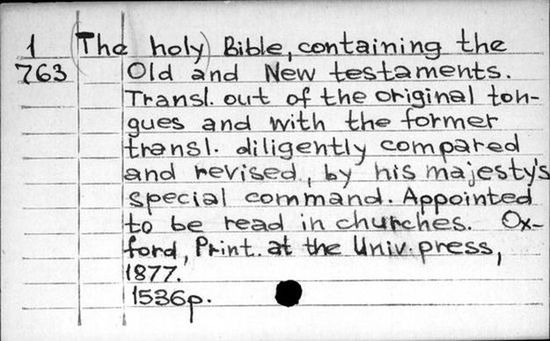 1 (The holy) Bible, containing the
763 Old and New testaments.
Transl. out of the original ton-
gues and with the former
transl. diligently compared
and revised, by his majesty's
special command. Appointed
to be read in churches. Ox-
ford, Print. at the Univ. press,
1877.
1536p.